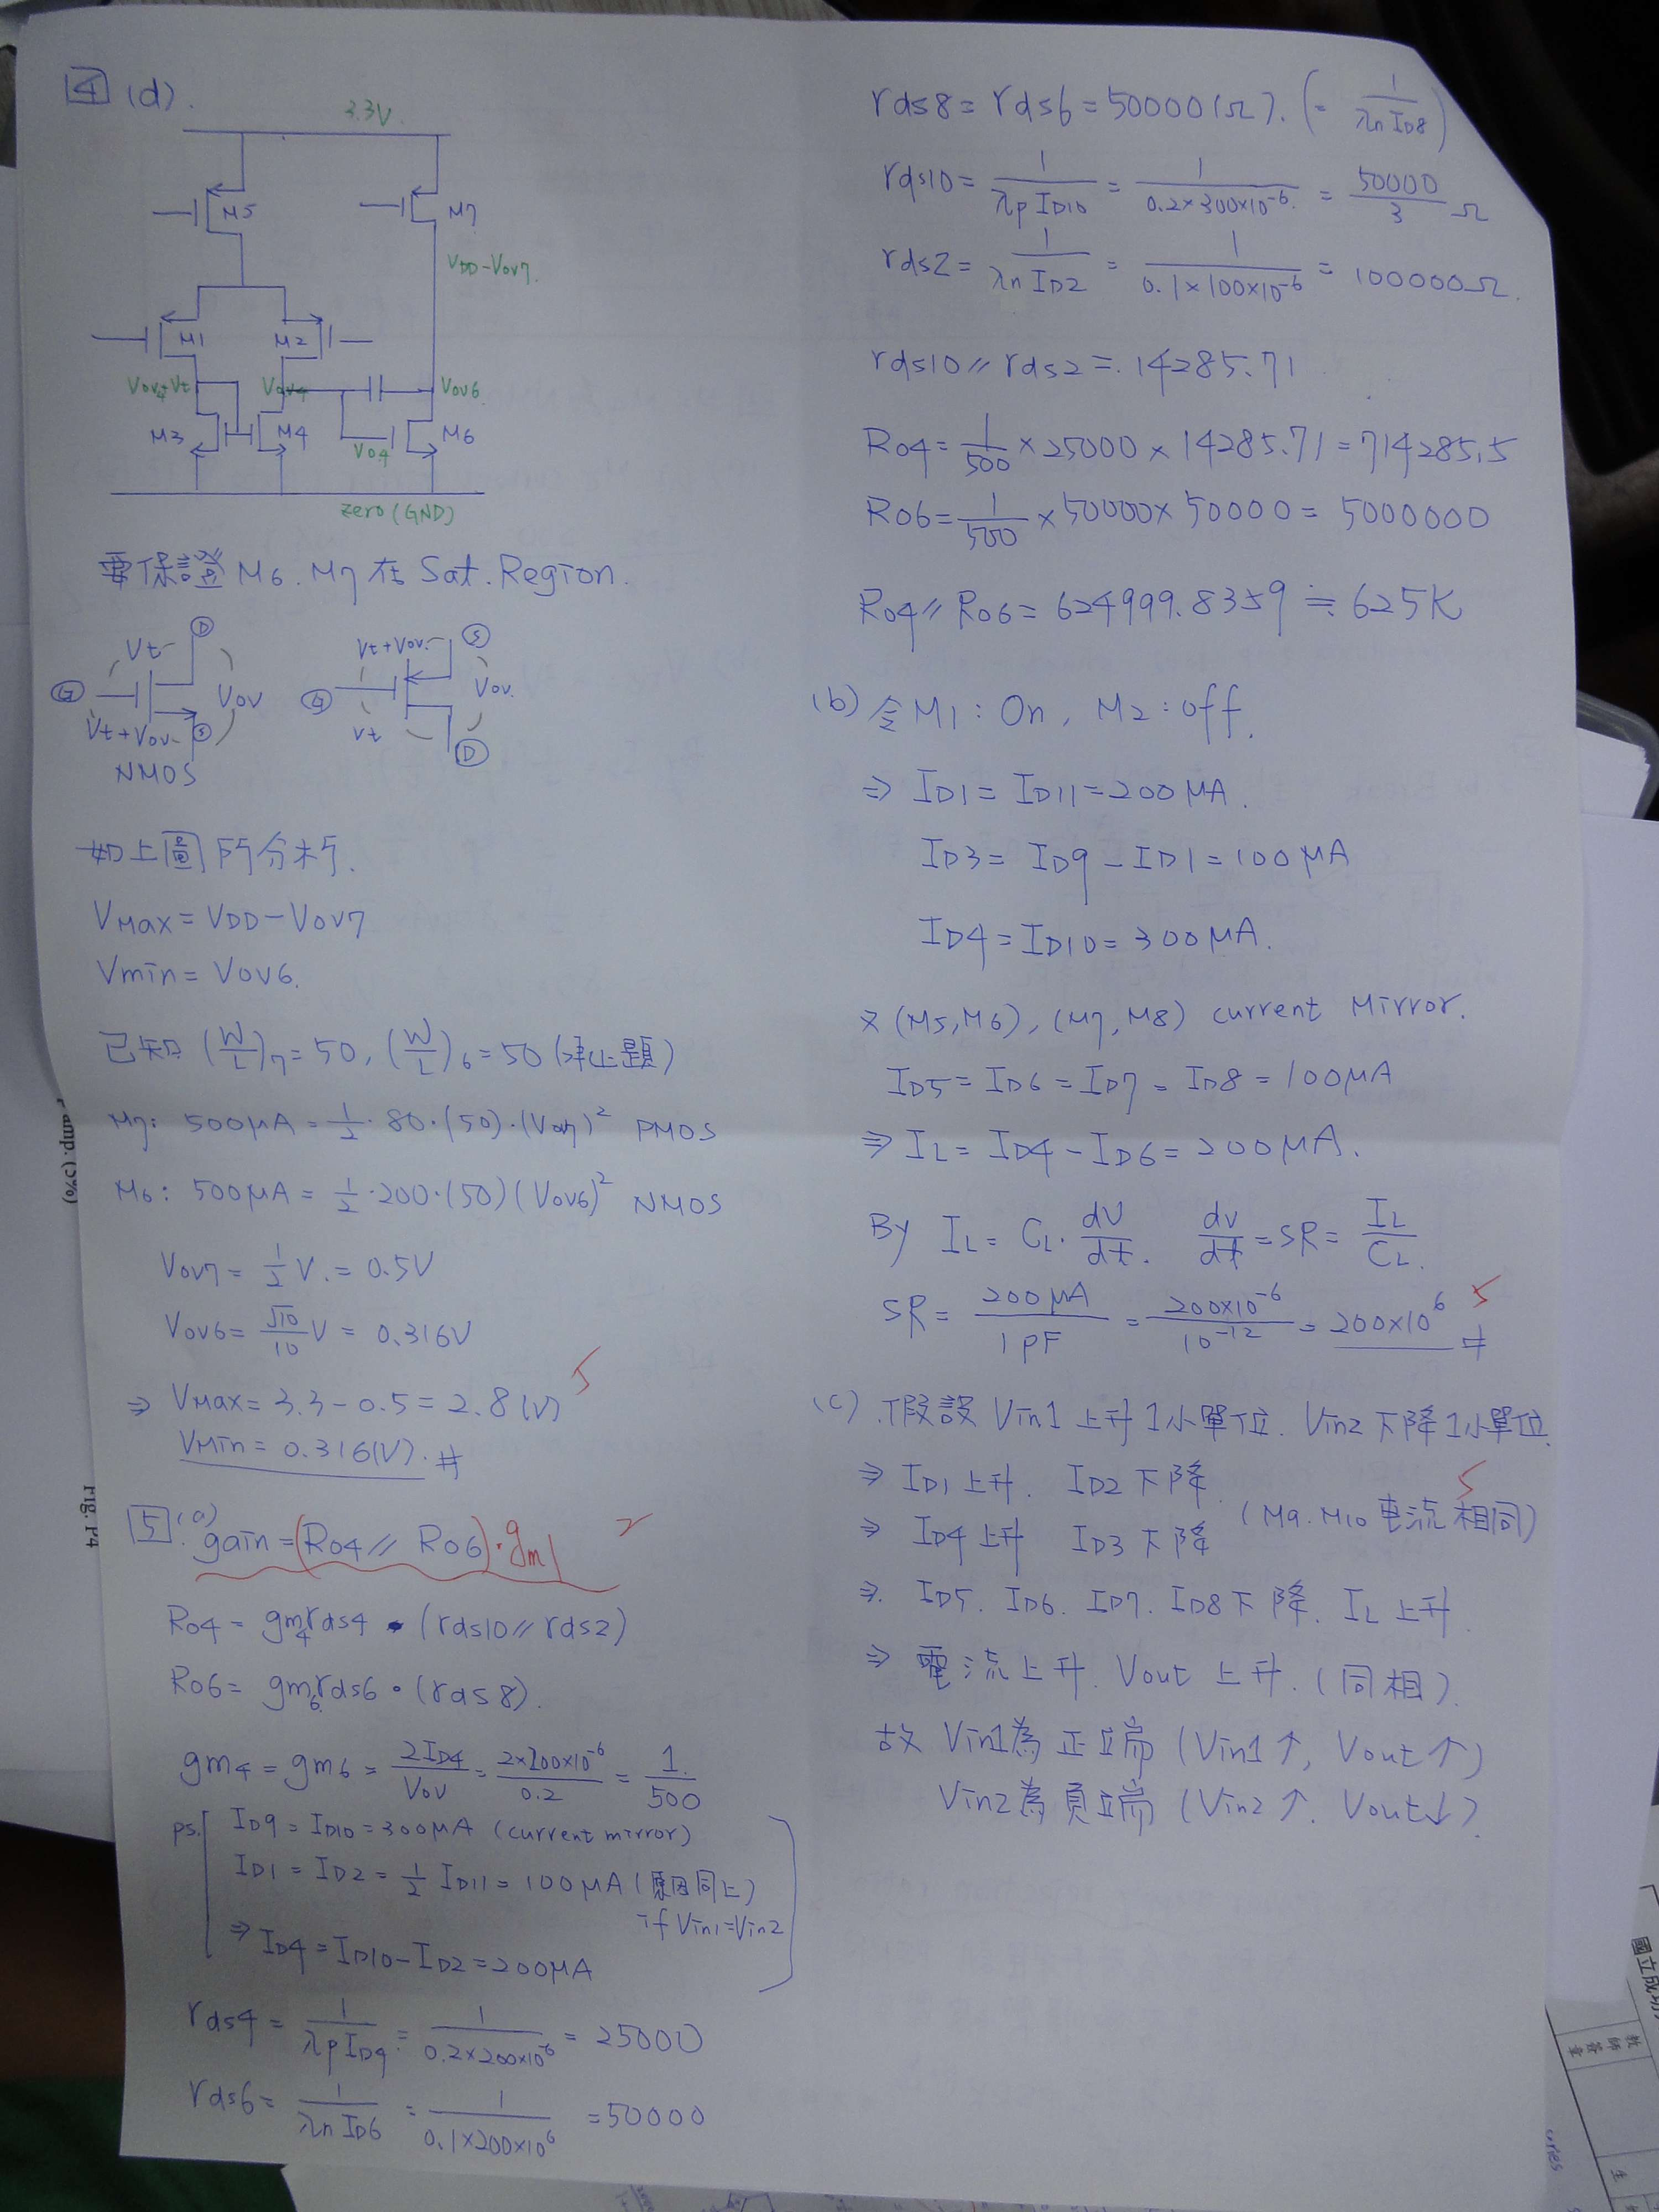 4 (d).
3.3V
M5
M7
VDD-Vov7
M1
M2
Vov4+Vt
Vov4
Vov6
M3
M4
M6
Vo4
zero(GND)
要保證 M6. M7 在 Sat. Region.
Vt
D
G
Vov
Vt+Vov
S
NMOS
Vt+Vov
S
G
Vov.
Vt
D
如上圖所分析.
VMax = VDD - Vov7
Vmin = Vov6.
已知 (W/L)7 = 50, (W/L)6 = 50 (承上題)
M7: 500μA = 1/2 · 80 · (50) · (Vov7)² PMOS
M6: 500μA = 1/2 · 200 · (50) (Vov6)² NMOS
Vov7 = 1/2 V. = 0.5V
Vov6 = √10/10 V = 0.316V
⇒ VMax = 3.3 - 0.5 = 2.8 (V)
5
VMin = 0.316(V). #
5. (a)
gain = (Ro4 // Ro6) · gm1
2
Ro4 = gm4 rds4 · (rds10 // rds2)
Ro6 = gm6 rds6 · (rds8).
gm4 = gm6 = 2ID4/Vov = 2×200×10⁻⁶/0.2 = 1/500
ps. ID9 = ID10 = 300μA (current mirror)
ID1 = ID2 = 1/2 ID11 = 100μA (原因同上)
if Vin1=Vin2
⇒ ID4 = ID10 - ID2 = 200μA
rds4 = 1/λp ID4 = 1/0.2×200×10⁻⁶ = 25000
rds6 = 1/λn ID6 = 1/0.1×200×10⁶ = 50000
rds8 = rds6 = 50000(Ω). (= 1/λn ID8)
rds10 = 1/λp ID10 = 1/0.2×300×10⁻⁶ = 50000/3 Ω
rds2 = 1/λn ID2 = 1/0.1×100×10⁻⁶ = 100000Ω.
rds10 // rds2 = 14285.71
Ro4 = 1/500 × 25000 × 14285.71 = 714285.5
Ro6 = 1/500 × 50000 × 50000 = 5000000
Ro4 // Ro6 = 624999.8359 ≒ 625K
(b) 令 M1: On, M2: off.
⇒ ID1 = ID11 = 200μA.
ID3 = ID9 - ID1 = 100μA
ID4 = ID10 = 300μA.
又 (M5,M6), (M7,M8) current Mirror.
ID5 = ID6 = ID7 = ID8 = 100μA
⇒ IL = ID4 - ID6 = 200μA.
By IL = CL · dV/dt. dv/dt = SR = IL/CL.
SR = 200μA/1PF = 200×10⁻⁶/10⁻¹² = 200×10⁶ #
5
(c) 假設 Vin1 上升1小單位. Vin2 下降1小單位.
⇒ ID1 上升. ID2 下降.
5
⇒ ID4 上升 ID3 下降 (M9. M10 電流相同)
⇒. ID5. ID6. ID7. ID8 下降. IL 上升
⇒ 電流上升. Vout 上升. (同相).
故 Vin1為正端 (Vin1↑, Vout↑)
Vin2為負端 (Vin2↑. Vout↓).
amp. (5%)
Fig. P4
國立成
教師簽章